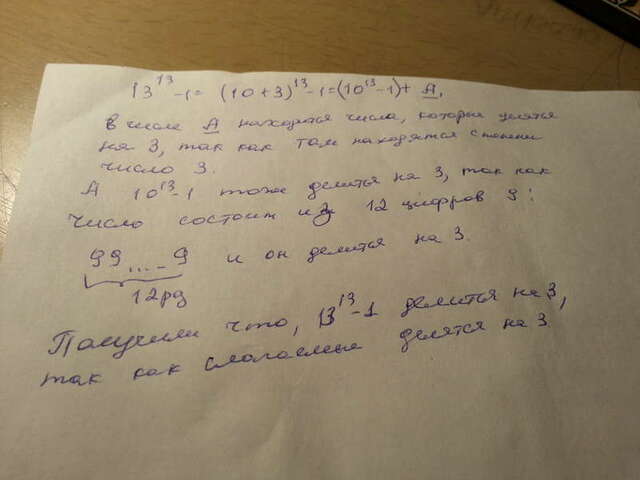 13¹³-1= (10+3)¹³-1=(10¹³-1)+ A,
в числе A находятся числа, которые делятся
на 3, так как там находятся степени
число 3.
А 10¹³-1 тоже делится на 3, так как
число состоит из 12 цифров 9:
99....9 и он делится на 3.
12рд
Получили что, 13¹³-1 делится на 3,
так как слагаемые делятся на 3